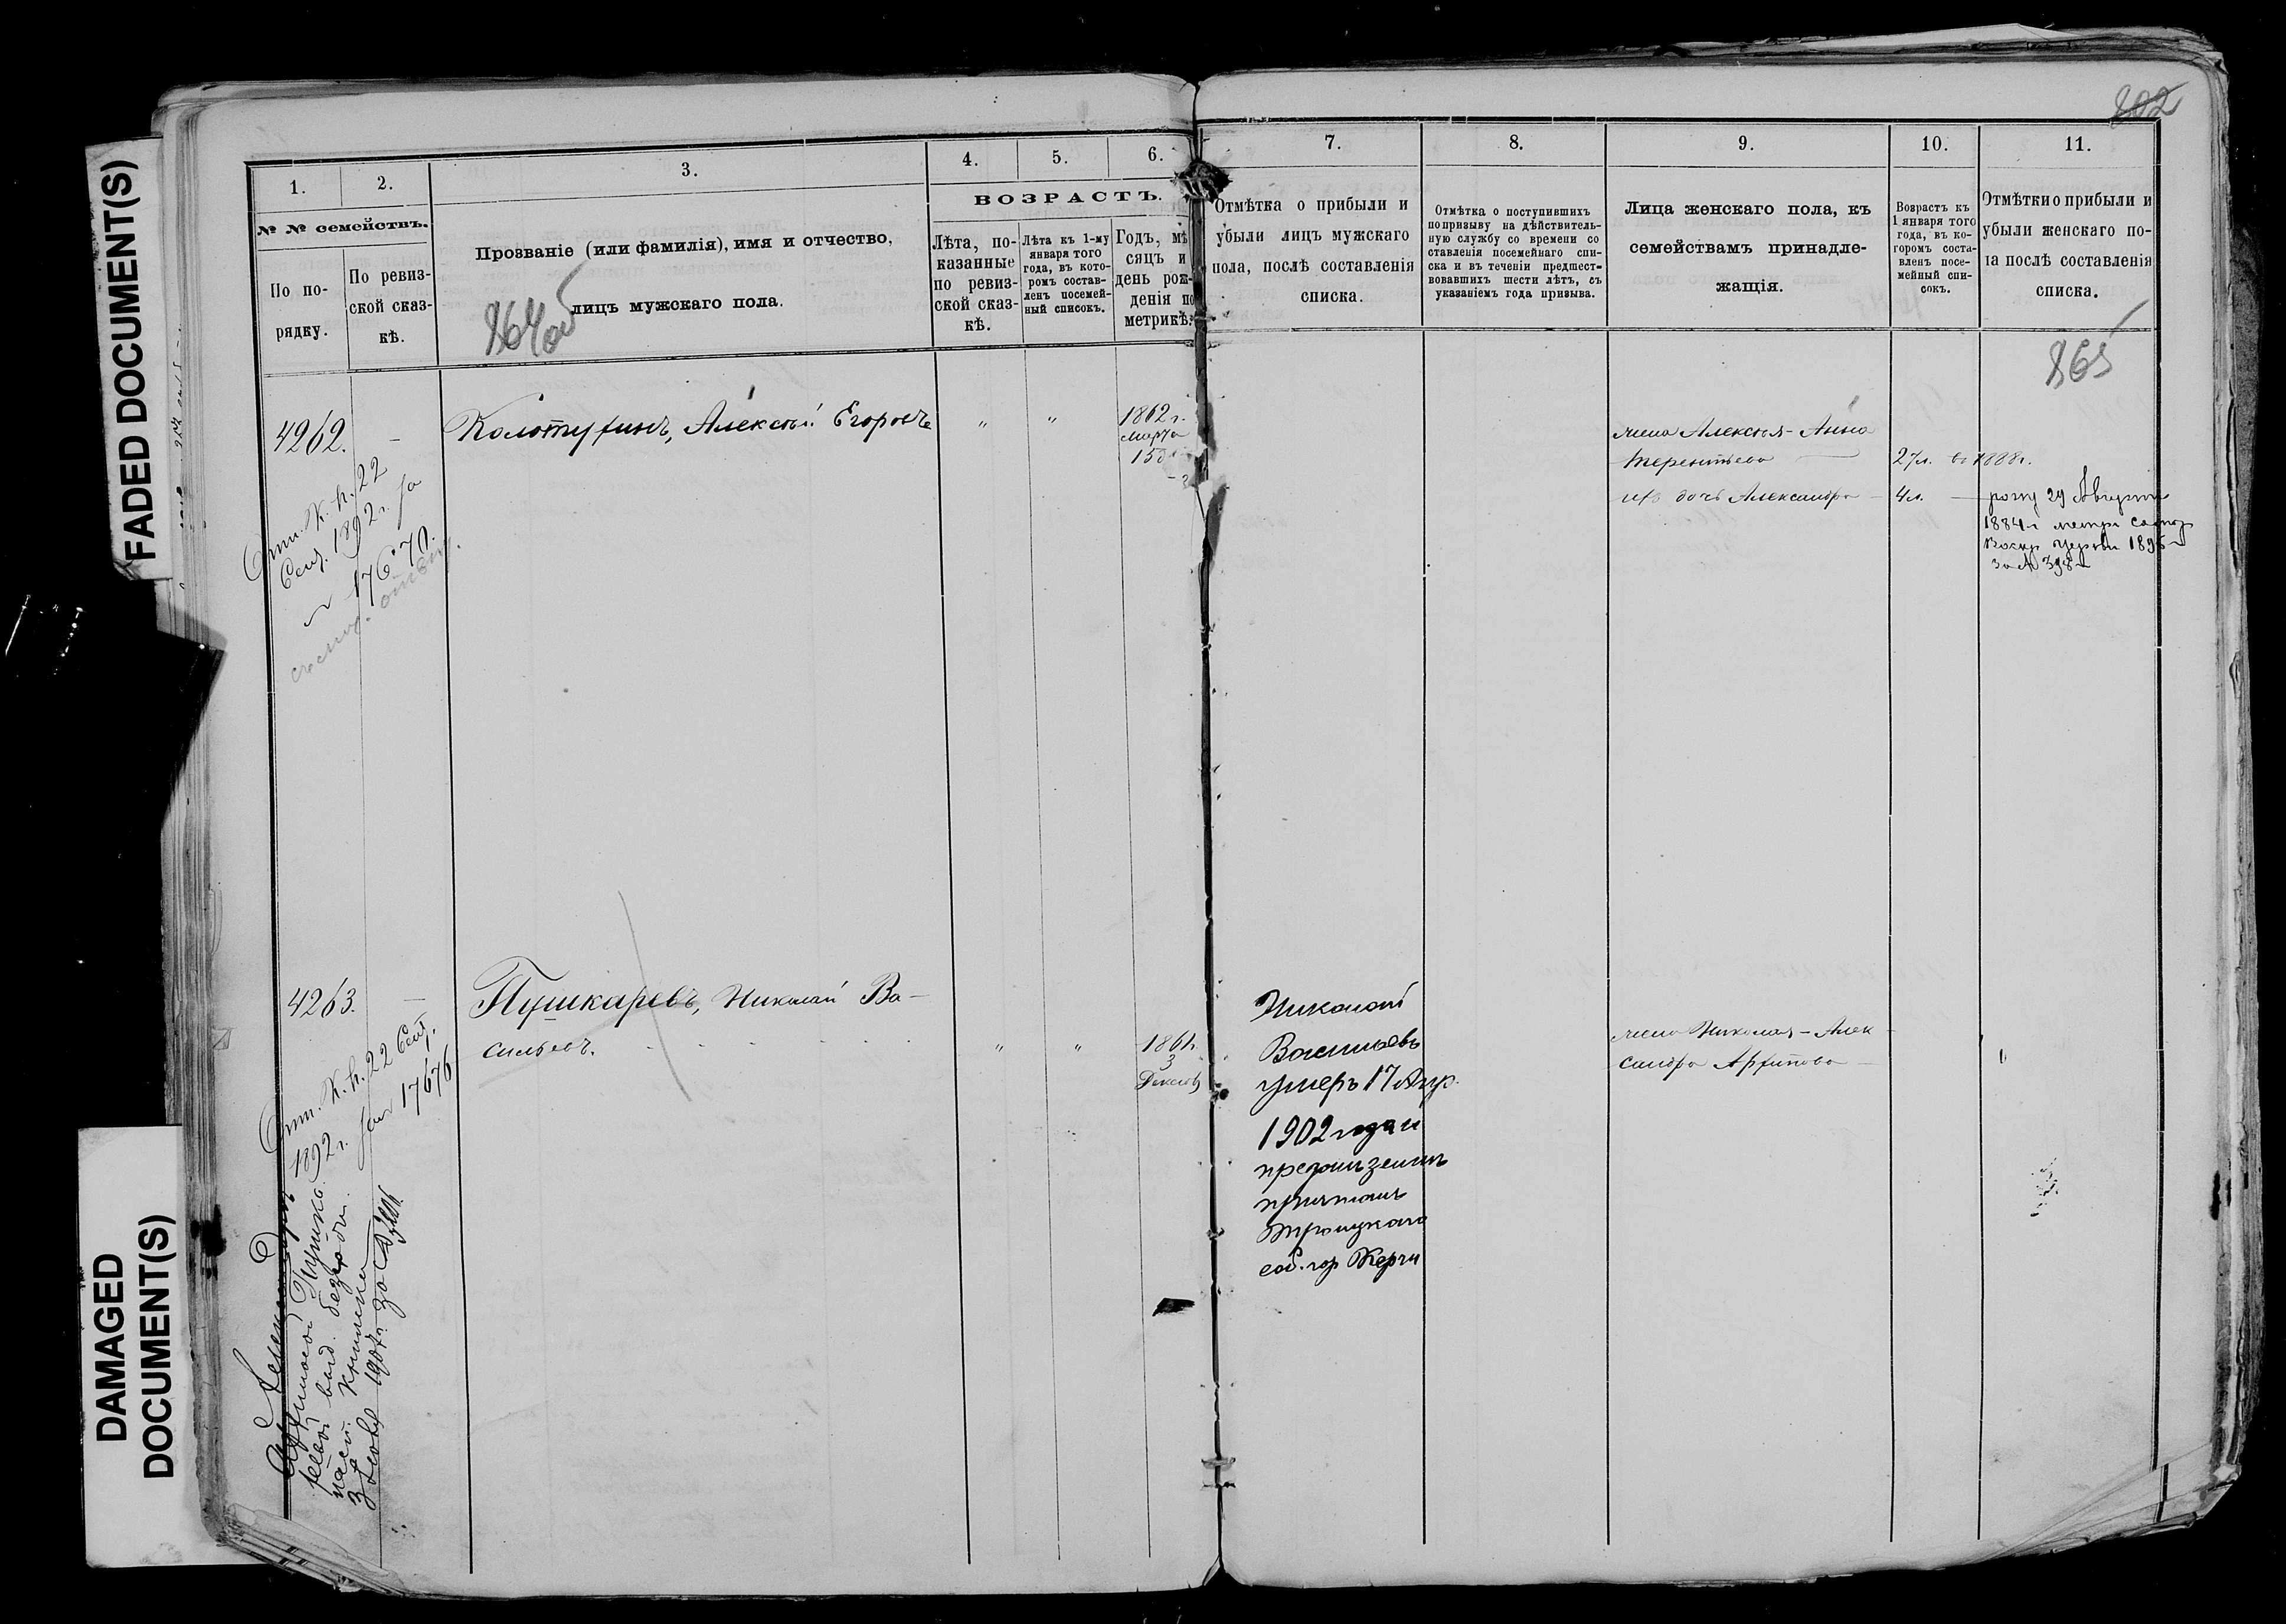 FADED DOCUMENT(S)
DAMAGED
DOCUMENT(S)
802
1.
2.
3.
4.
5.
6.
7.
8.
9.
10.
11.
№ № семействъ.
По по-
рядку.
По ревиз-
ской сказ-
кѣ.
Прозваніе (или фамилія), имя и отчество,
лицъ мужскаго пола.
864 об
ВОЗРАСТЪ.
Лѣта, по-
казанные
по ревиз-
ской сказ-
кѣ.
Лѣта къ 1-му
января того
года, въ кото-
ромъ состав-
ленъ посемей-
ный списокъ.
Годъ, мѣ
сяцъ и
день рож-
денія по
метрикѣ.
Отмѣтка о прибыли и
убыли лицъ мужскаго
пола, послѣ составленія
списка.
Отмѣтка о поступившихъ
по призыву на дѣйствитель-
ную службу со времени со
ставленія посемейнаго спи-
ска и въ теченіи предшест-
вовавшихъ шести лѣтъ, съ
указаніемъ года призыва.
Лица женскаго пола, къ
семействамъ принадле-
жащія.
Возрастъ къ
1 января того
года, въ ко-
торомъ соста-
вленъ посе-
мейный спи-
сокъ.
Отмѣтки о прибыли и
убыли женскаго по-
ла послѣ составленія
списка.
865
4262. —
Отн. К. п. 22
Сент. 1892 г. за
№ 17670.
Алексѣй Егоровъ
" "
1862 г.
Марта
15
жена Алексѣя - Анна
Терентьева
27 л. въ 1888 г.
ихъ дочь Александра — 4 л. —
29 Августа
1884 г. метр.
церкви 1895
за № 398
4263. —
Отн. К. п. 22 Сент.
1892 г. за № 17676
Пушкаревъ, Николай Ва-
сильевъ.
" "
1861 г.
3
Николай
Васильевъ
умеръ 17 Апр.
1902 года и
причтомъ
Троицкаго
соб. гор Керчи
жена Николая - Алек-
сандра Архипова —